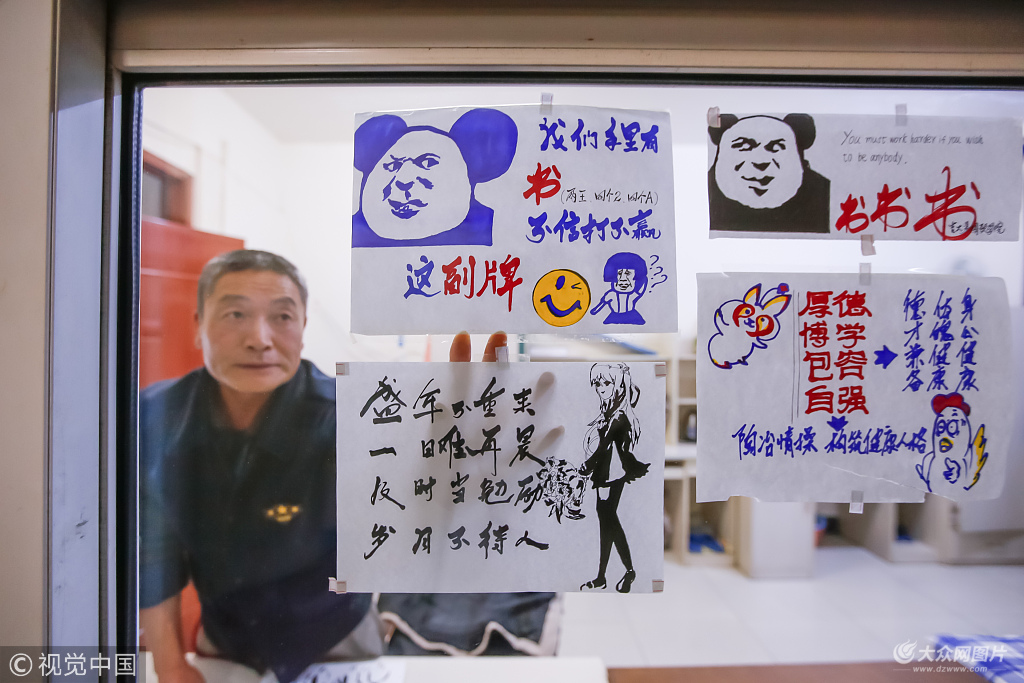 我们手里有
书(两王,四个2,四个A)
不信打不赢
这副牌
???
You must work harder if you wish
to be anybody.
书书书
盛年不重来
一日难再晨
及时当勉励
岁月不待人
厚德
博学
包容
自强
身心健康
德才兼备
陶冶情操 构筑健康人格
©视觉中国
大众网图片
www.dzwww.com